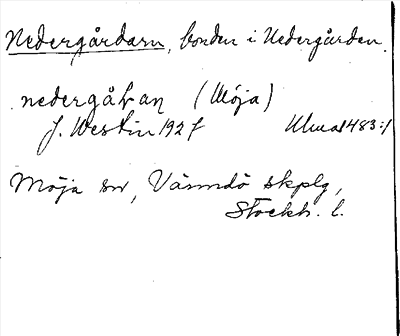 Nedergårdarn, bonden i Nedergården.
nedergåḷan (Möja)
J. Westin 1927 Ulma 1483:1
Möja sn, Värmdö skplg,
Stockh. l.